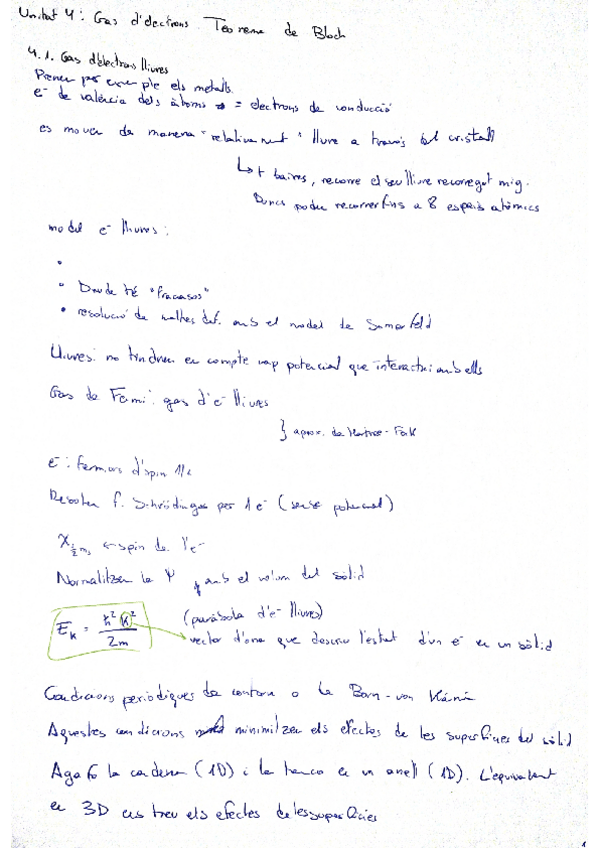 Unitat 4: Gas d'electrons. Teorema de Bloch
4.1. Gas d'electrons lliures
Prenem per exemple els metalls.
e⁻ de valència dels àtoms = electrons de conducció
es mouen de manera "relativament" lliure a través del cristall
↳ + baixes, recorre el seu lliure recorregut mig.
Doncs poden recórrer fins a 8 espais atòmics
model e⁻ lliures:
•
• Drude té "fracasos"
• resolució de def. amb el model de Somerfeld
Lliures: no tindrem en compte cap potencial que interactui amb ells
Gas de Fermi: gas d'e⁻ lliures
} aprox. de Hartree-Fock
e⁻: fermions d'spin 1/2
Resoldre f. Schrödinger per 1 e⁻ (sense potencial)
χ½ms ← spin de l'e⁻
Normalitzem la Ψ amb el volum del sòlid
E_k = ħ²k²/2m (paràbola d'e⁻ lliures)
vector d'ona que descriu l'estat d'un e⁻ en un sòlid
Condicions periòdiques de contorn o de Born-von Kármán
Aquestes condicions minimitzen els efectes de les superfícies del sòlid
Agafo la cadena (1D) i la tanco en un anell (1D). L'equivalent
en 3D ens treu els efectes de les superfícies
1